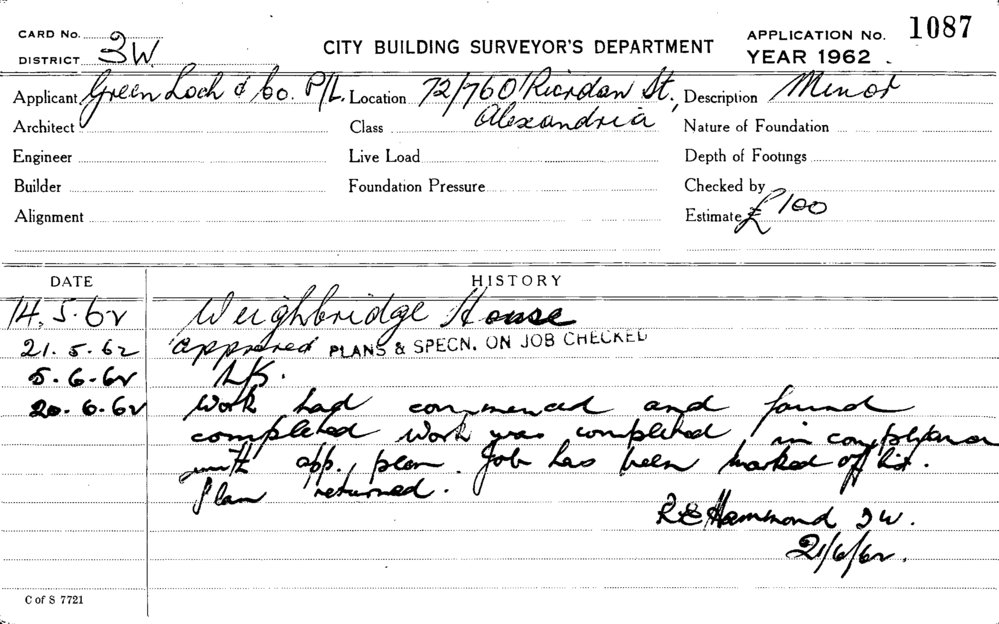 CARD No.
DISTRICT 3W. CITY BUILDING SURVEYOR'S DEPARTMENT APPLICATION No. 1087
YEAR 1962
Applicant Green Loch & Co. P/L. Location 72/760 Riordan St., Description Minor
Architect Class Alexandria Nature of Foundation
Engineer Live Load Depth of Footings
Builder Foundation Pressure Checked by
Alignment Estimate £100
DATE HISTORY
14.5.62 Weighbridge House
21.5.62 approved PLANS & SPECN. ON JOB CHECKED
5.6.62
20.6.62 Work had commenced and found
completed work was completed in compliance
with app., plan. Job has been marked off list.
Plan returned.
R E Hammond 3W.
21/6/62.
C of S 7721